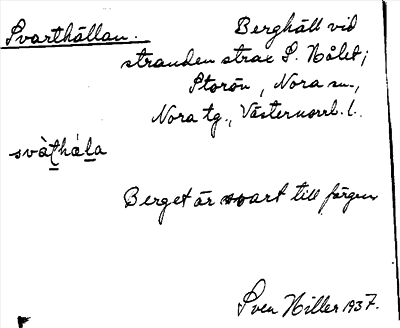 Svarthällan.
Berghäll vid
stranden strax S. Nålet;
Storön, Nora sn.,
Nora tg., Västernorrl. l.
svàt̲hál̲a
Berget är svart till färgen
Sven Hiller 1937.